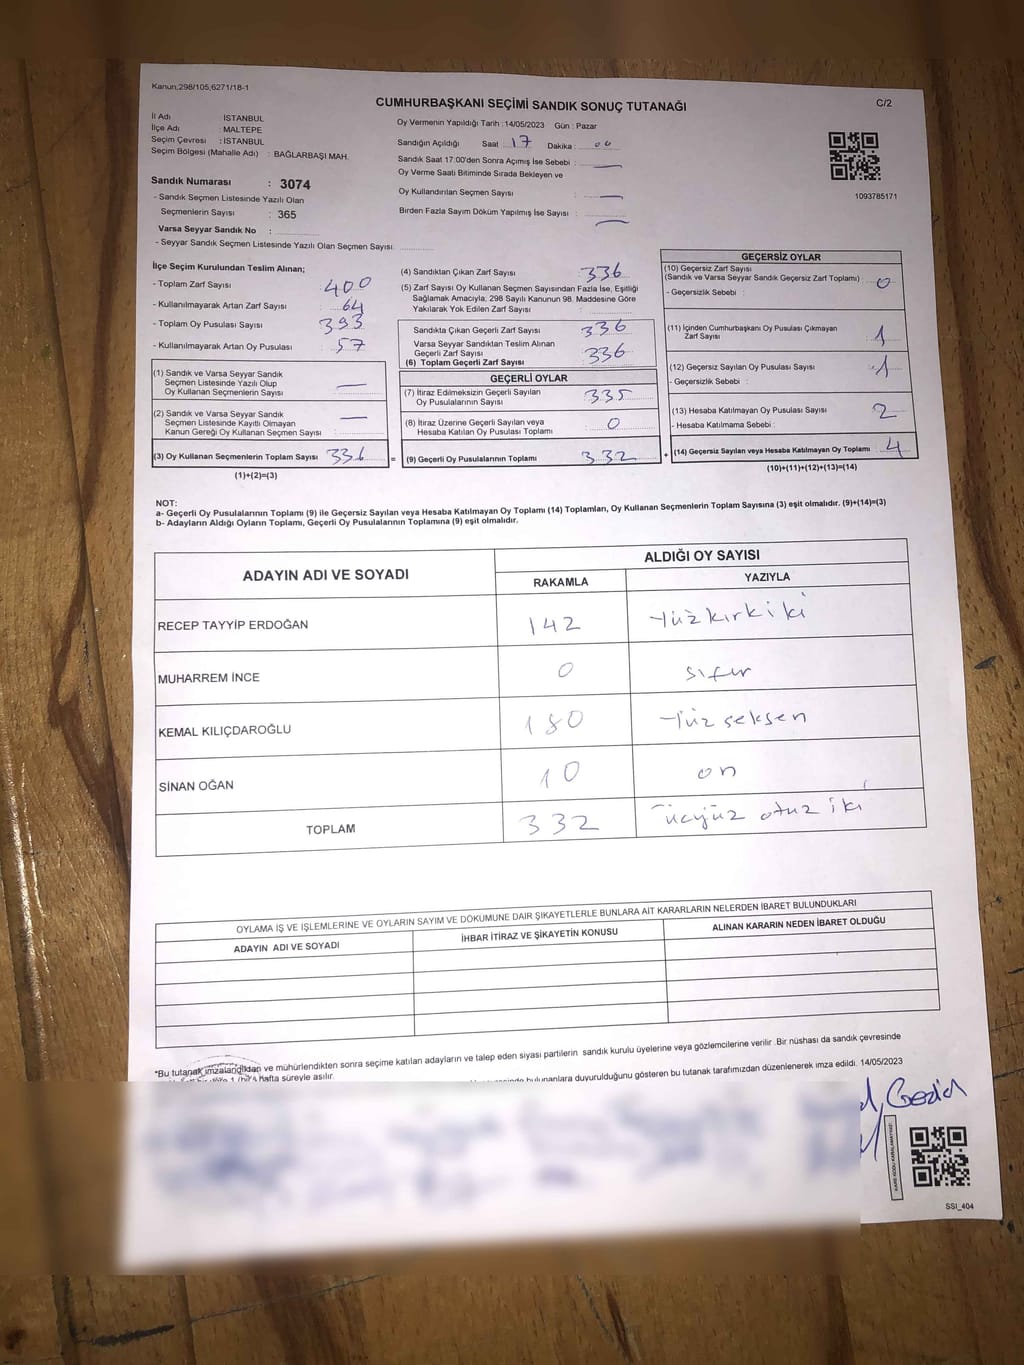 Kanun,298/105,6271/18-1
CUMHURBAŞKANI SEÇİMİ SANDIK SONUÇ TUTANAĞI
C/2
İl Adı : İSTANBUL
İlçe Adı : MALTEPE
Seçim Çevresi : İSTANBUL
Seçim Bölgesi (Mahalle Adı) : BAĞLARBAŞI MAH.
Sandık Numarası : 3074
- Sandık Seçmen Listesinde Yazılı Olan
Seçmenlerin Sayısı : 365
Varsa Seyyar Sandık No :
- Seyyar Sandık Seçmen Listesinde Yazılı Olan Seçmen Sayısı:
Oy Vermenin Yapıldığı Tarih :14/05/2023 Gün : Pazar
Sandığın Açıldığı Saat 17 Dakika : 00
Sandık Saat 17:00'den Sonra Açımış İse Sebebi :
Oy Verme Saati Bitiminde Sırada Bekleyen ve
Oy Kullandırılan Seçmen Sayısı :
Birden Fazla Sayım Döküm Yapılmış İse Sayısı :
1093785171
İlçe Seçim Kurulundan Teslim Alınan;
- Toplam Zarf Sayısı : 400
- Kullanılmayarak Artan Zarf Sayısı : 64
- Toplam Oy Pusulası Sayısı : 393
- Kullanılmayarak Artan Oy Pusulası : 57
(1) Sandık ve Varsa Seyyar Sandık
Seçmen Listesinde Yazılı Olup
Oy Kullanan Seçmenlerin Sayısı :
(2) Sandık ve Varsa Seyyar Sandık
Seçmen Listesinde Kayıtlı Olmayan
Kanun Gereği Oy Kullanan Seçmen Sayısı :
(3) Oy Kullanan Seçmenlerin Toplam Sayısı 336 =
(1)+(2)=(3)
(4) Sandıktan Çıkan Zarf Sayısı : 336
(5) Zarf Sayısı Oy Kullanan Seçmen Sayısından Fazla İse, Eşitliği
Sağlamak Amacıyla; 298 Sayılı Kanunun 98. Maddesine Göre
Yakılarak Yok Edilen Zarf Sayısı :
Sandıkta Çıkan Geçerli Zarf Sayısı : 336
Varsa Seyyar Sandıktan Teslim Alınan
Geçerli Zarf Sayısı
(6) Toplam Geçerli Zarf Sayısı : 336
GEÇERLİ OYLAR
(7) İtiraz Edilmeksizin Geçerli Sayılan
Oy Pusulalarının Sayısı : 335
(8) İtiraz Üzerine Geçerli Sayılan veya
Hesaba Katılan Oy Pusulası Toplamı : 0
(9) Geçerli Oy Pusulalarının Toplamı : 332 +
GEÇERSİZ OYLAR
(10) Geçersiz Zarf Sayısı
(Sandık ve Varsa Seyyar Sandık Geçersiz Zarf Toplamı) : 0
- Geçersizlik Sebebi :
(11) İçinden Cumhurbaşkanı Oy Pusulası Çıkmayan
Zarf Sayısı : 1
(12) Geçersiz Sayılan Oy Pusulası Sayısı : 1
- Geçersizlik Sebebi :
(13) Hesaba Katılmayan Oy Pusulası Sayısı : 2
- Hesaba Katılmama Sebebi :
(14) Geçersiz Sayılan veya Hesaba Katılmayan Oy Toplamı : 4
(10)+(11)+(12)+(13)=(14)
NOT:
a- Geçerli Oy Pusulalarının Toplamı (9) ile Geçersiz Sayılan veya Hesaba Katılmayan Oy Toplamı (14) Toplamları, Oy Kullanan Seçmenlerin Toplam Sayısına (3) eşit olmalıdır. (9)+(14)=(3)
b- Adayların Aldığı Oyların Toplamı, Geçerli Oy Pusulalarının Toplamına (9) eşit olmalıdır.
ADAYIN ADI VE SOYADI
ALDIĞI OY SAYISI
RAKAMLA YAZIYLA
RECEP TAYYİP ERDOĞAN 142 Yüzkırkiki
MUHARREM İNCE 0 sıfır
KEMAL KILIÇDAROĞLU 180 Yüz seksen
SİNAN OĞAN 10 on
TOPLAM 332 üçyüz otuz iki
OYLAMA İŞ VE İŞLEMLERİNE VE OYLARIN SAYIM VE DÖKÜMÜNE DAİR ŞİKAYETLERLE BUNLARA AİT KARARLARIN NELERDEN İBARET BULUNDUKLARI
ADAYIN ADI VE SOYADI İHBAR İTİRAZ VE ŞİKAYETİN KONUSU ALINAN KARARIN NEDEN İBARET OLDUĞU
*Bu tutanak imzalandıktan ve mühürlendikten sonra seçime katılan adayların ve talep eden siyasi partilerin sandık kurulu üyelerine veya gözlemcilerine verilir .Bir nüshası da sandık çevresinde
hafta süreyle asılır.
bulunanlara duyurulduğunu gösteren bu tutanak tarafımızdan düzenlenerek imza edildi. 14/05/2023
SSI_404